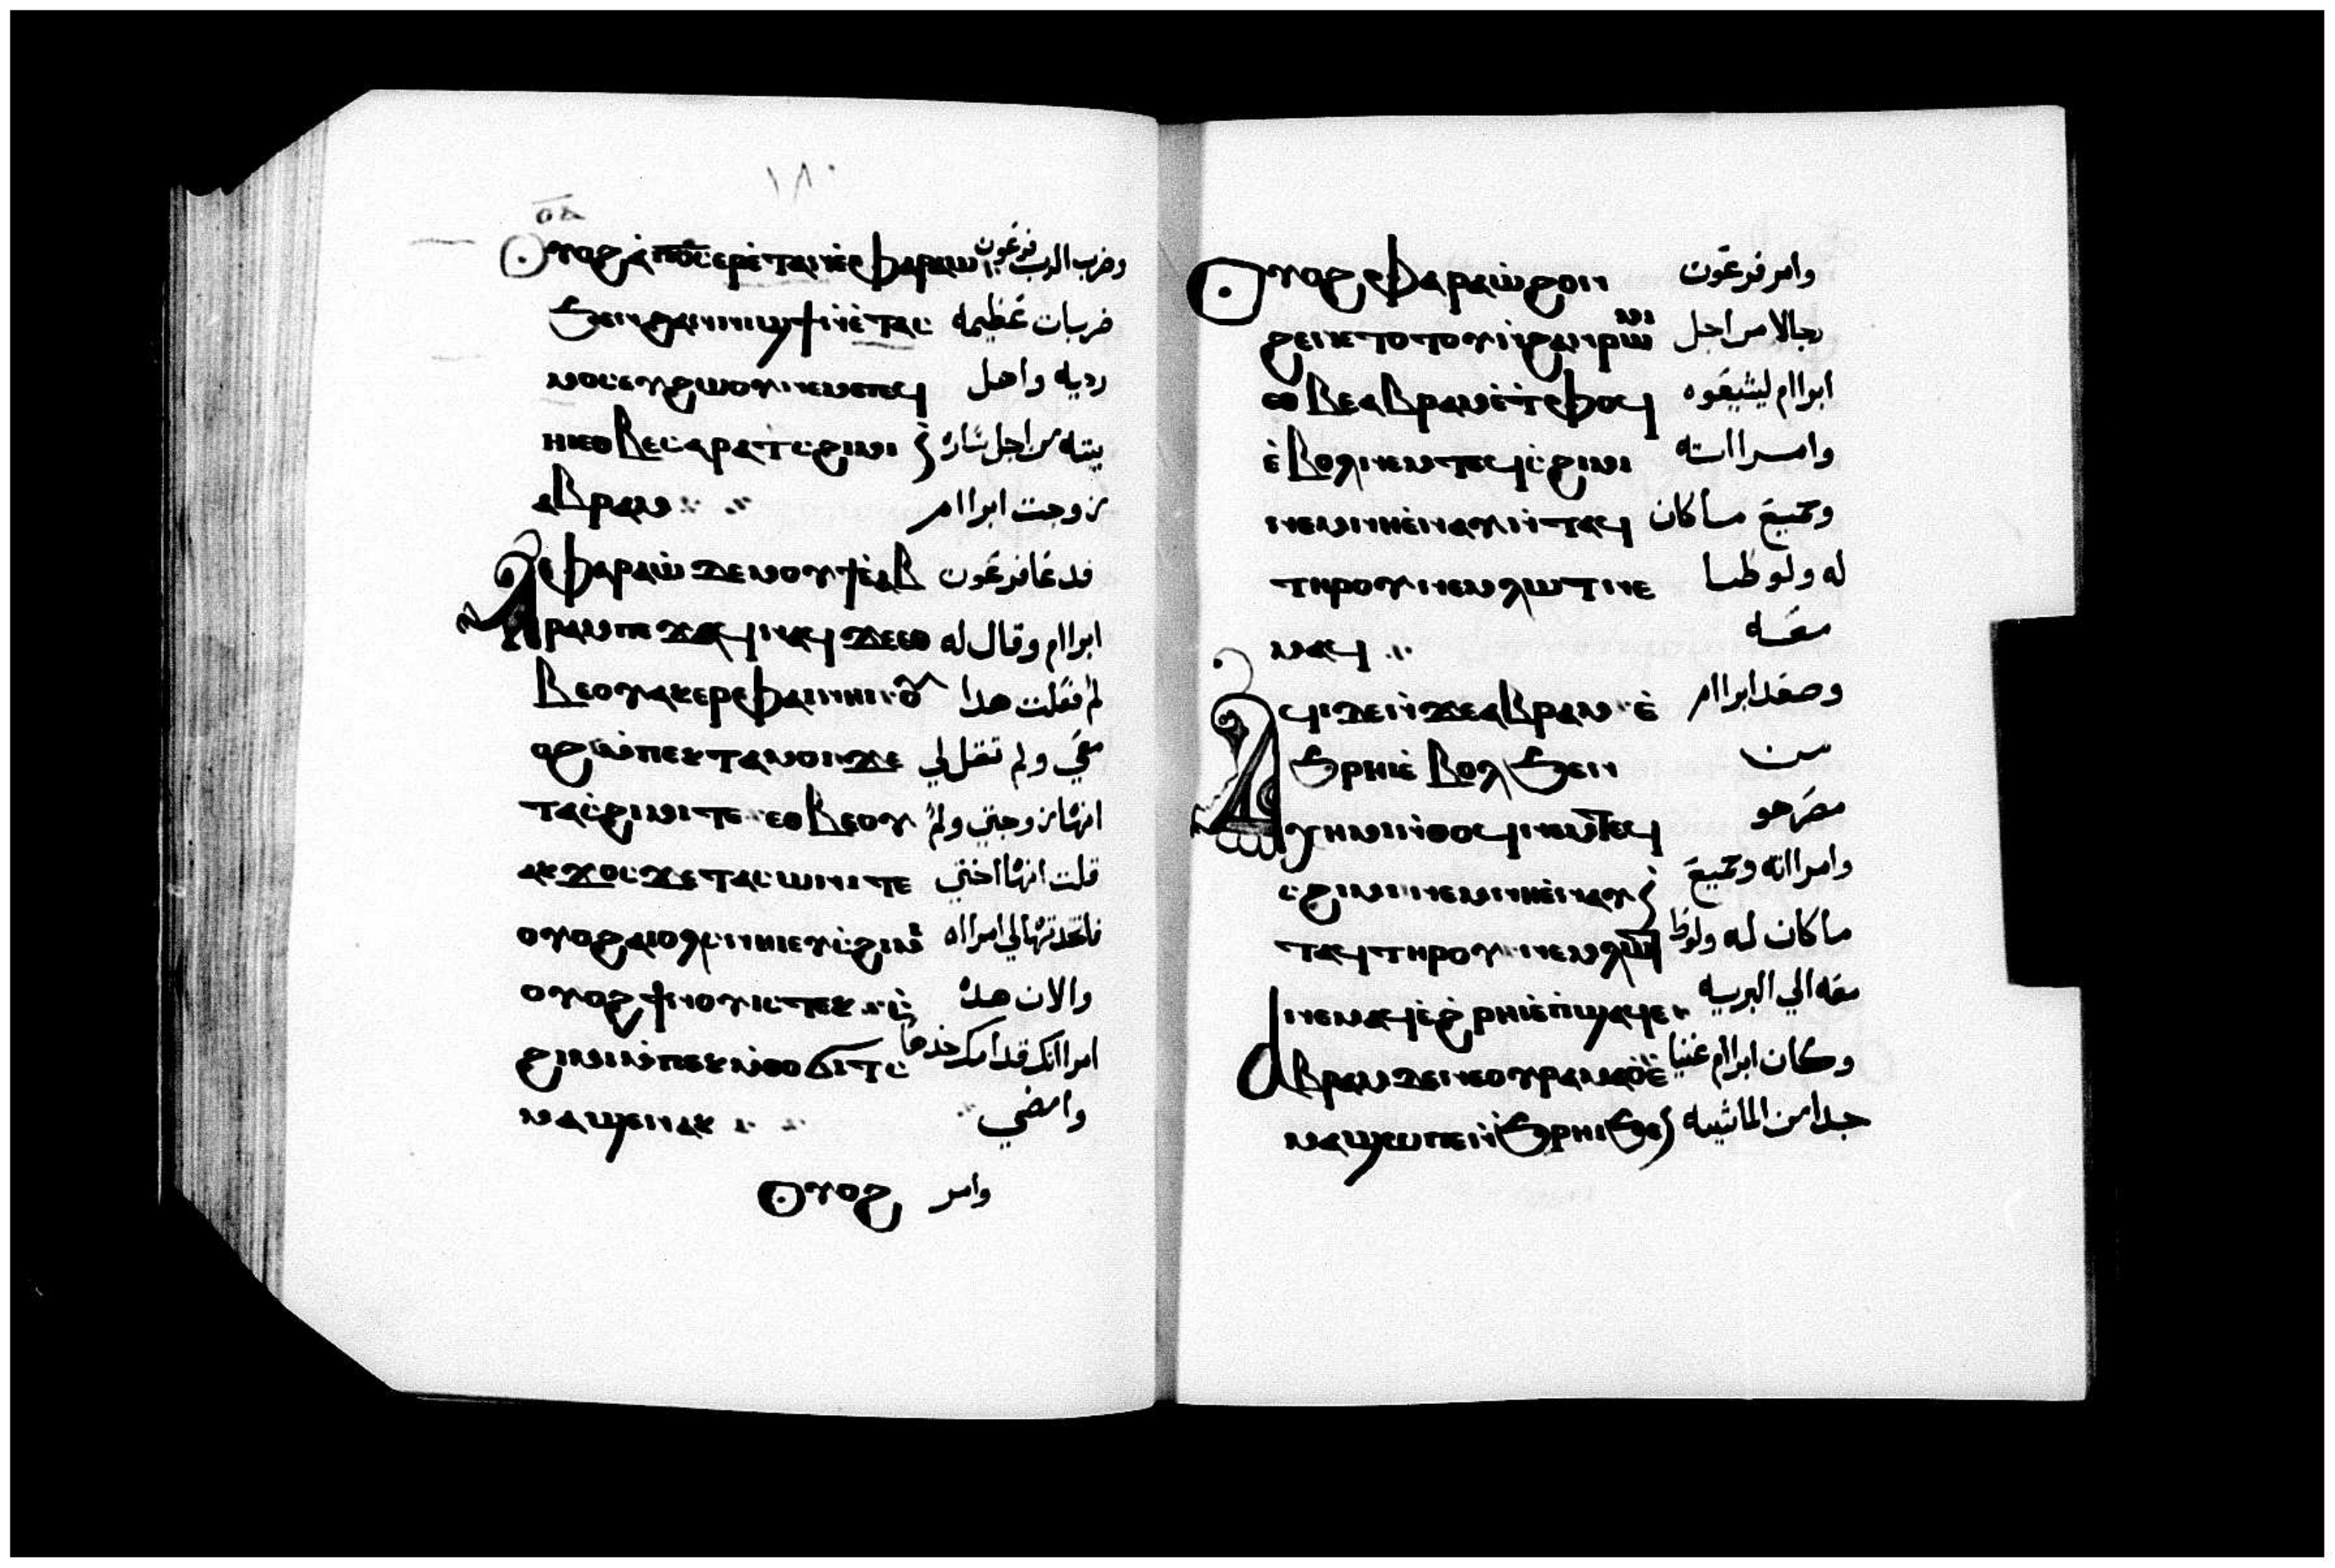 ١٨٠
ⲟ̅ⲁ̅
ⲟⲩⲟϩ ⲁ̀ⲡ⳪ ⲉⲣⲉ̀ⲧⲁⲓⲛⲉ ⲫⲁⲣⲁⲱ̀ وضرب الرب فرعون
ϧⲉⲛϩⲁⲛⲛⲓϣϯⲛ̀ⲉ̀ⲧⲁⲥ ضربات عظيمه
ⲙⲟⲥⲉⲩϩⲱⲟⲩⲛⲉⲙⲡⲉϥ رديه واهل
ⲏⲓⲉⲑⲃⲉⲥⲁⲣⲁⲧⲥϩⲓⲙⲓ بيته من اجل ساره
ⲁⲃⲣⲁⲙ زوجت ابراام
ⲁⲫⲁⲣⲁⲱ̀ ⲇⲉⲙⲟⲩϯⲉ̀ⲁⲃ فدعا فرعون
ⲣⲁⲙⲡⲉϫⲁϥⲛⲁϥϫⲉⲉⲑ ابراام وقال له
ⲃⲉⲟⲩⲁⲕⲉⲣⲫⲁⲓⲛⲏⲓⲟⲩ لم فعلت هدا
ⲟϩⲙ̀ⲡⲉⲕⲧⲁⲙⲟⲓϫⲉ معي ولم تقل لي
ⲧⲁⲥ̀ϩⲓⲙⲓⲧⲉ ⲉⲑⲃⲉⲟⲩ انها زوجتي ولم
ⲁⲕϫⲟⲥϫⲉⲧⲁⲥⲱⲛⲓⲧⲉ قلت انها اختي
ⲟⲩⲟϩⲁⲓⲟⲗⲥⲛⲏⲓⲉⲩⲥ̀ϩⲓⲙⲓ فاتخدتها لي امرااه
ⲟⲩⲟϩϯⲛⲟⲩⲓⲥⲧⲉⲕⲥ̀ والان هده
ϩⲓⲙⲓⲙ̀ⲡⲉⲕⲙ̀ⲑⲟϭⲓⲧⲥ امرااتك قدامك خدها
ⲙⲁϣⲉⲛⲁⲕ وامضي
ⲟⲩⲟϩ وامر
ⲟⲩⲟϩⲫⲁⲣⲁⲱ̀ϩⲟⲛ وامر فرعون
ϩⲉⲛⲕⲧⲟⲧⲟⲩⲛ̀ϩⲁⲛⲣⲱⲙⲓ رجالا من اجل
ⲉⲑⲃⲉⲁⲃⲣⲁⲙⲉ̀ⲧⲫⲟϥ ابراام ليشيعوه
ⲉ̀ⲃⲟⲗⲛⲉⲙⲧⲉϥⲥ̀ϩⲓⲙⲓ وامرااته
ⲛⲉⲙⲛⲏⲉ̀ⲛⲁⲩⲛ̀ⲧⲁϥ وجميع ما كان
ⲧⲏⲣⲟⲩⲛⲉⲙⲗⲱⲧⲛⲉ له ولوطا
ⲙⲁϥ معه
ⲁϥⲓⲇⲉⲛ̀ϫⲉⲁⲃⲣⲁⲙⲉ̀ وصعد ابراام
ϧⲣⲏⲓⲉ̀ⲃⲟⲗϧⲉⲛ من
ⲭⲏⲙⲓⲛ̀ⲑⲟϥⲛⲉⲙⲧⲉϥ مصر هو
ⲥϩⲓⲙⲓⲛⲉⲙⲛⲏⲉ̀ⲛⲁⲩⲛ وامرااته وجميع
ⲧⲁϥⲧⲏⲣⲟⲩⲛⲉⲙⲗⲱⲧ ما كان له ولوط
ⲛⲉⲙⲁϥⲉ̀ϩⲣⲏⲓⲉ̀ⲡ̀ϣⲁϥⲉ معه الي البريه
ⲁⲃⲣⲁⲙⲇⲉⲛⲉⲟⲩⲣⲁⲙⲁⲟ̀ⲉ̀ وكان ابراام غنيا
ⲙⲁϣⲱⲡⲉⲛ̀ϧⲣⲏⲓϧⲉⲛ جدا من الماشيه